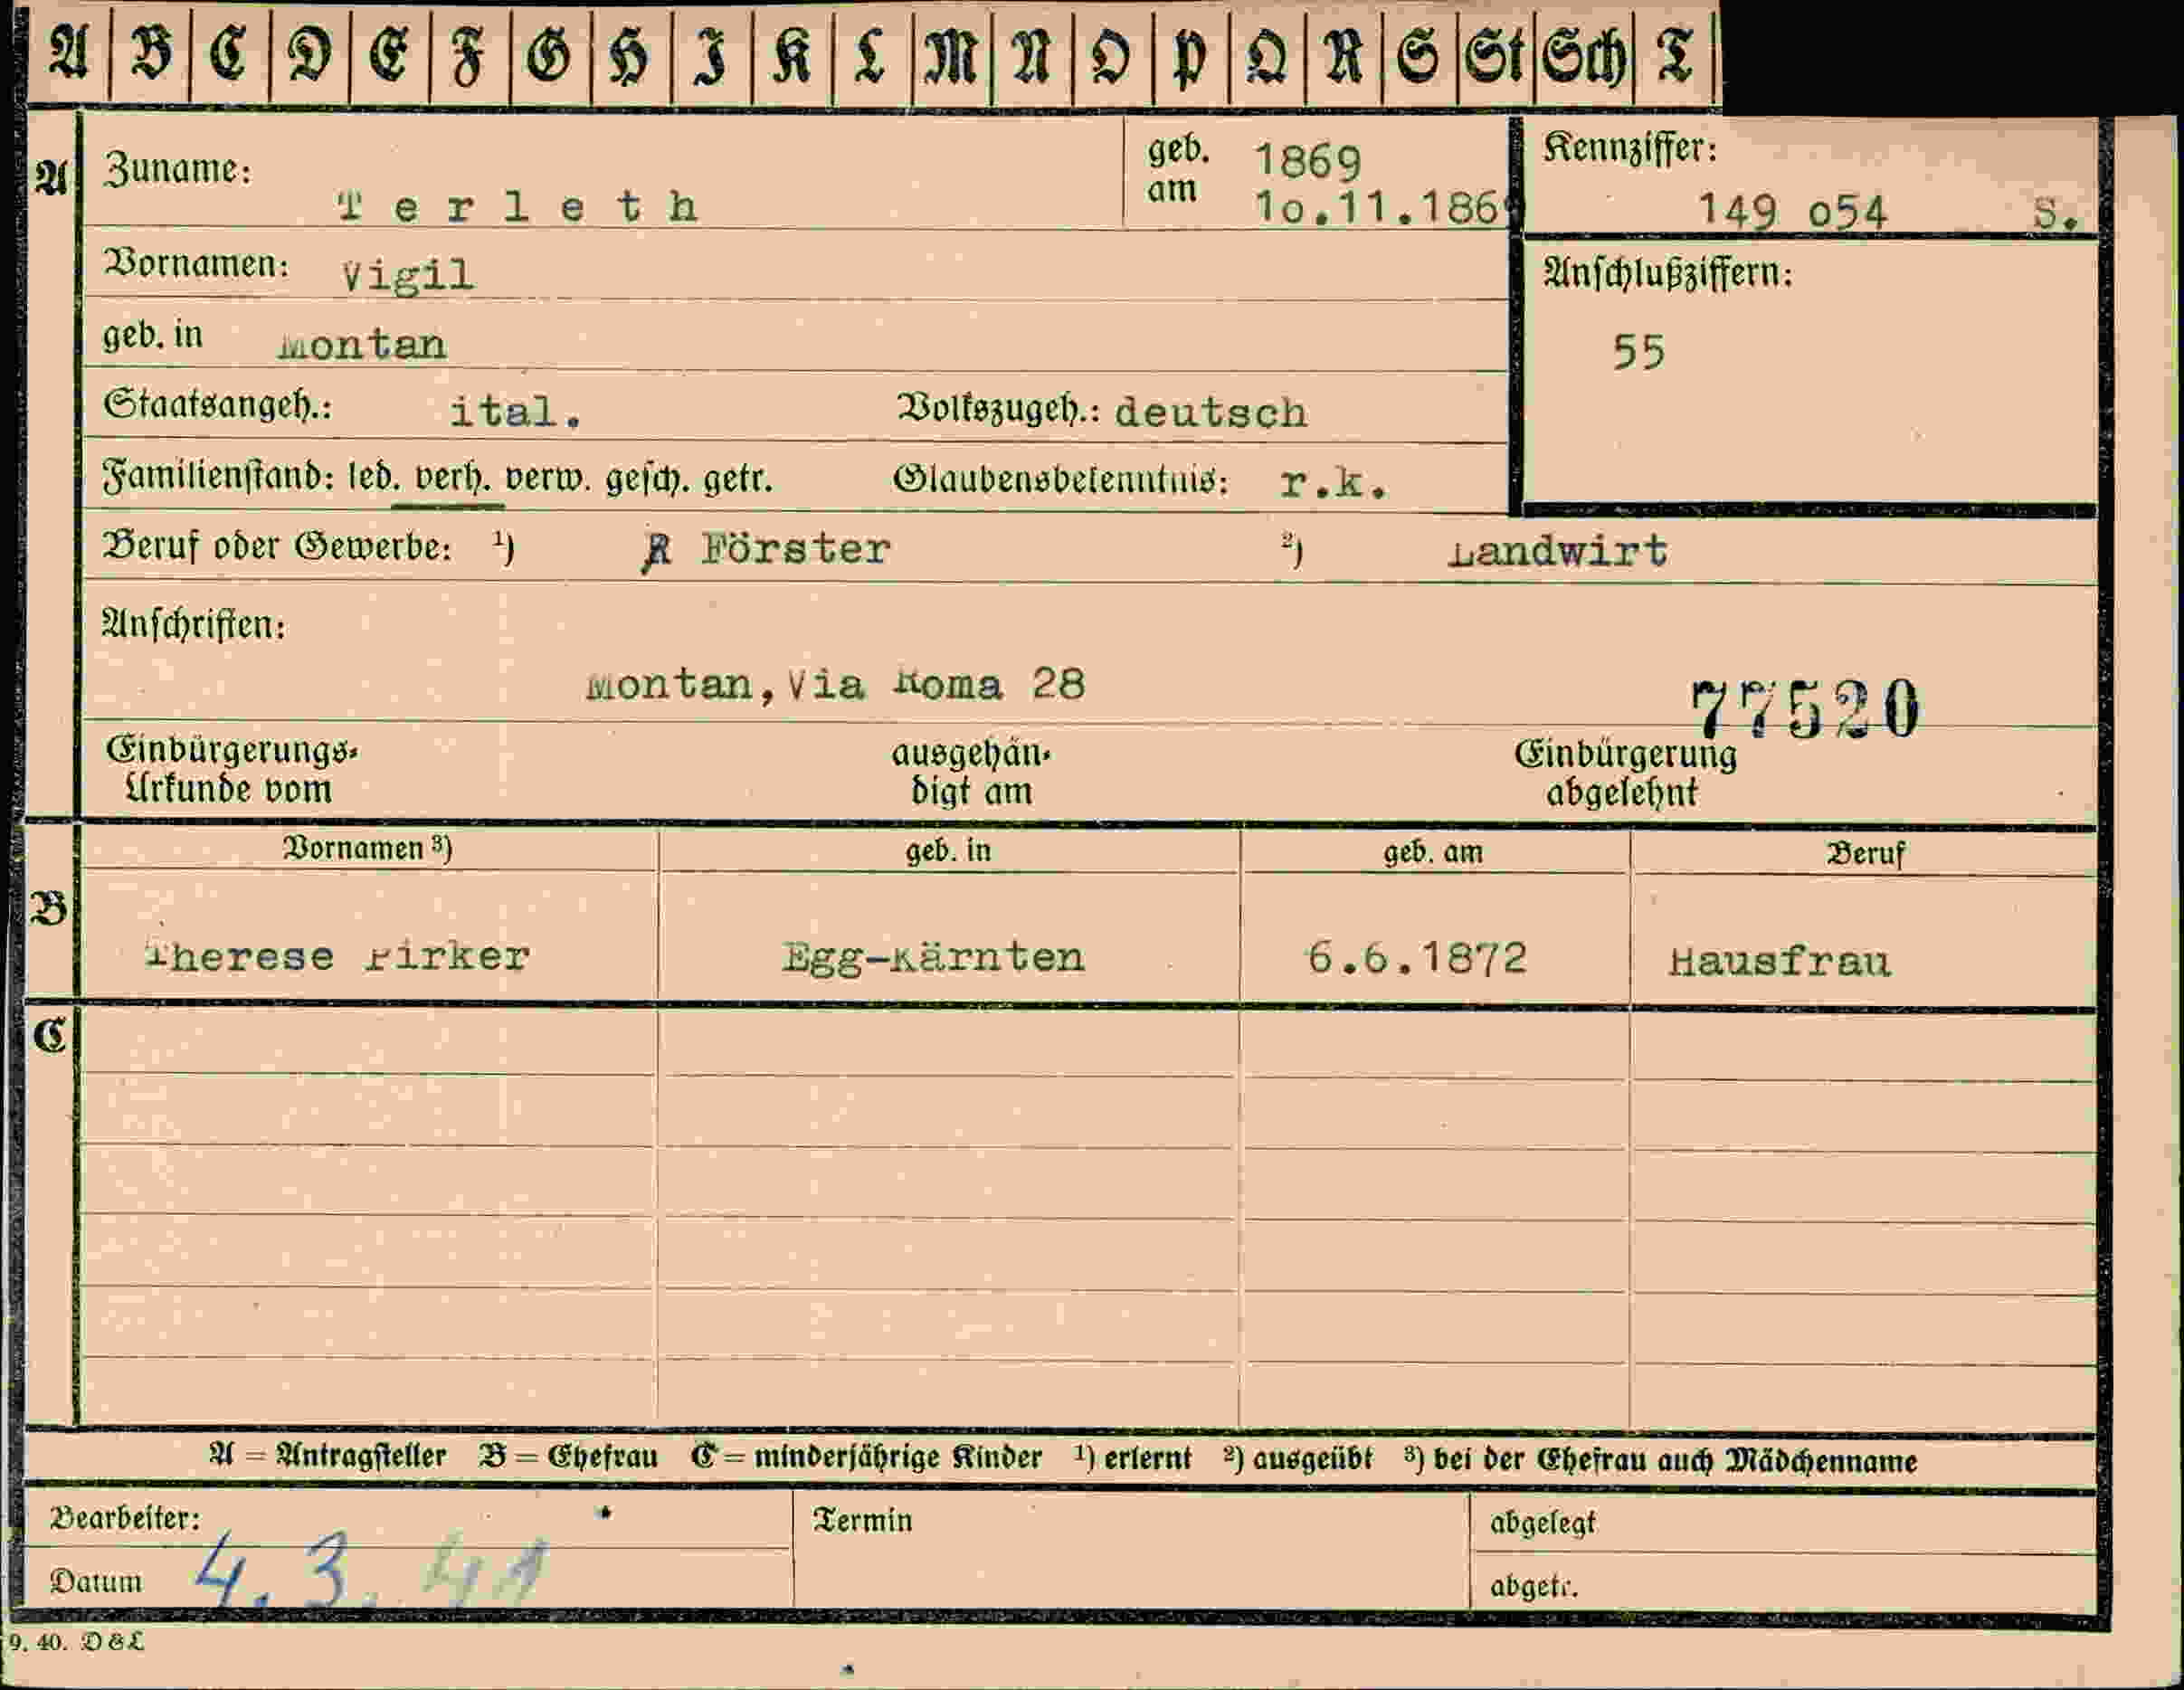 A B C D E F G H I K L M N O P Q R S St Sch T
A
Zuname: Terleth
geb. am 1869
10.11.1869
Kennziffer:
149 o54 S.
Vornamen: Vigil
Anschlußziffern:
55
geb. in Montan
Staatsangeh.: ital. Volkszugeh.: deutsch
Familienstand: led. verh. verw. gesch. getr. Glaubensbekenntnis: r.k.
Beruf oder Gewerbe: ¹) Förster ²) Landwirt
Anschriften:
Montan, Via Roma 28
77520
Einbürgerungs-
Urkunde vom
ausgehän-
digt am
Einbürgerung
abgelehnt
B
Vornamen ³) geb. in geb. am Beruf
Therese Pirker Egg-Kärnten 6.6.1872 Hausfrau
C
A = Antragsteller B = Ehefrau C = minderjährige Kinder ¹) erlernt ²) ausgeübt ³) bei der Ehefrau auch Mädchenname
Bearbeiter:
Termin
abgelegt
Datum 4.3.41
abgetr.
9. 40. D & L